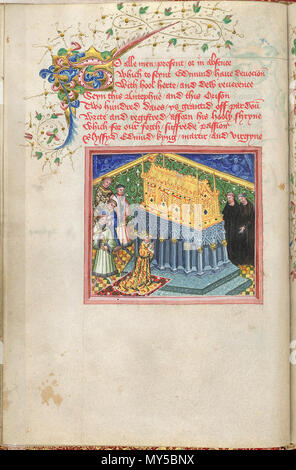 To alle men present or in absence
Which to seynt Edmund have devocion
With hool herte and dew reverence
Seyn this Antephne and this Orison
Two hundred daies ys grantid off pardoun
Write and registred afforn his holy shryne
Which for our feith suffrede passioun
Blyssyd Edmund kyng martir and virgyne
alamy
alamy
www.alamy.com - MY5BNX